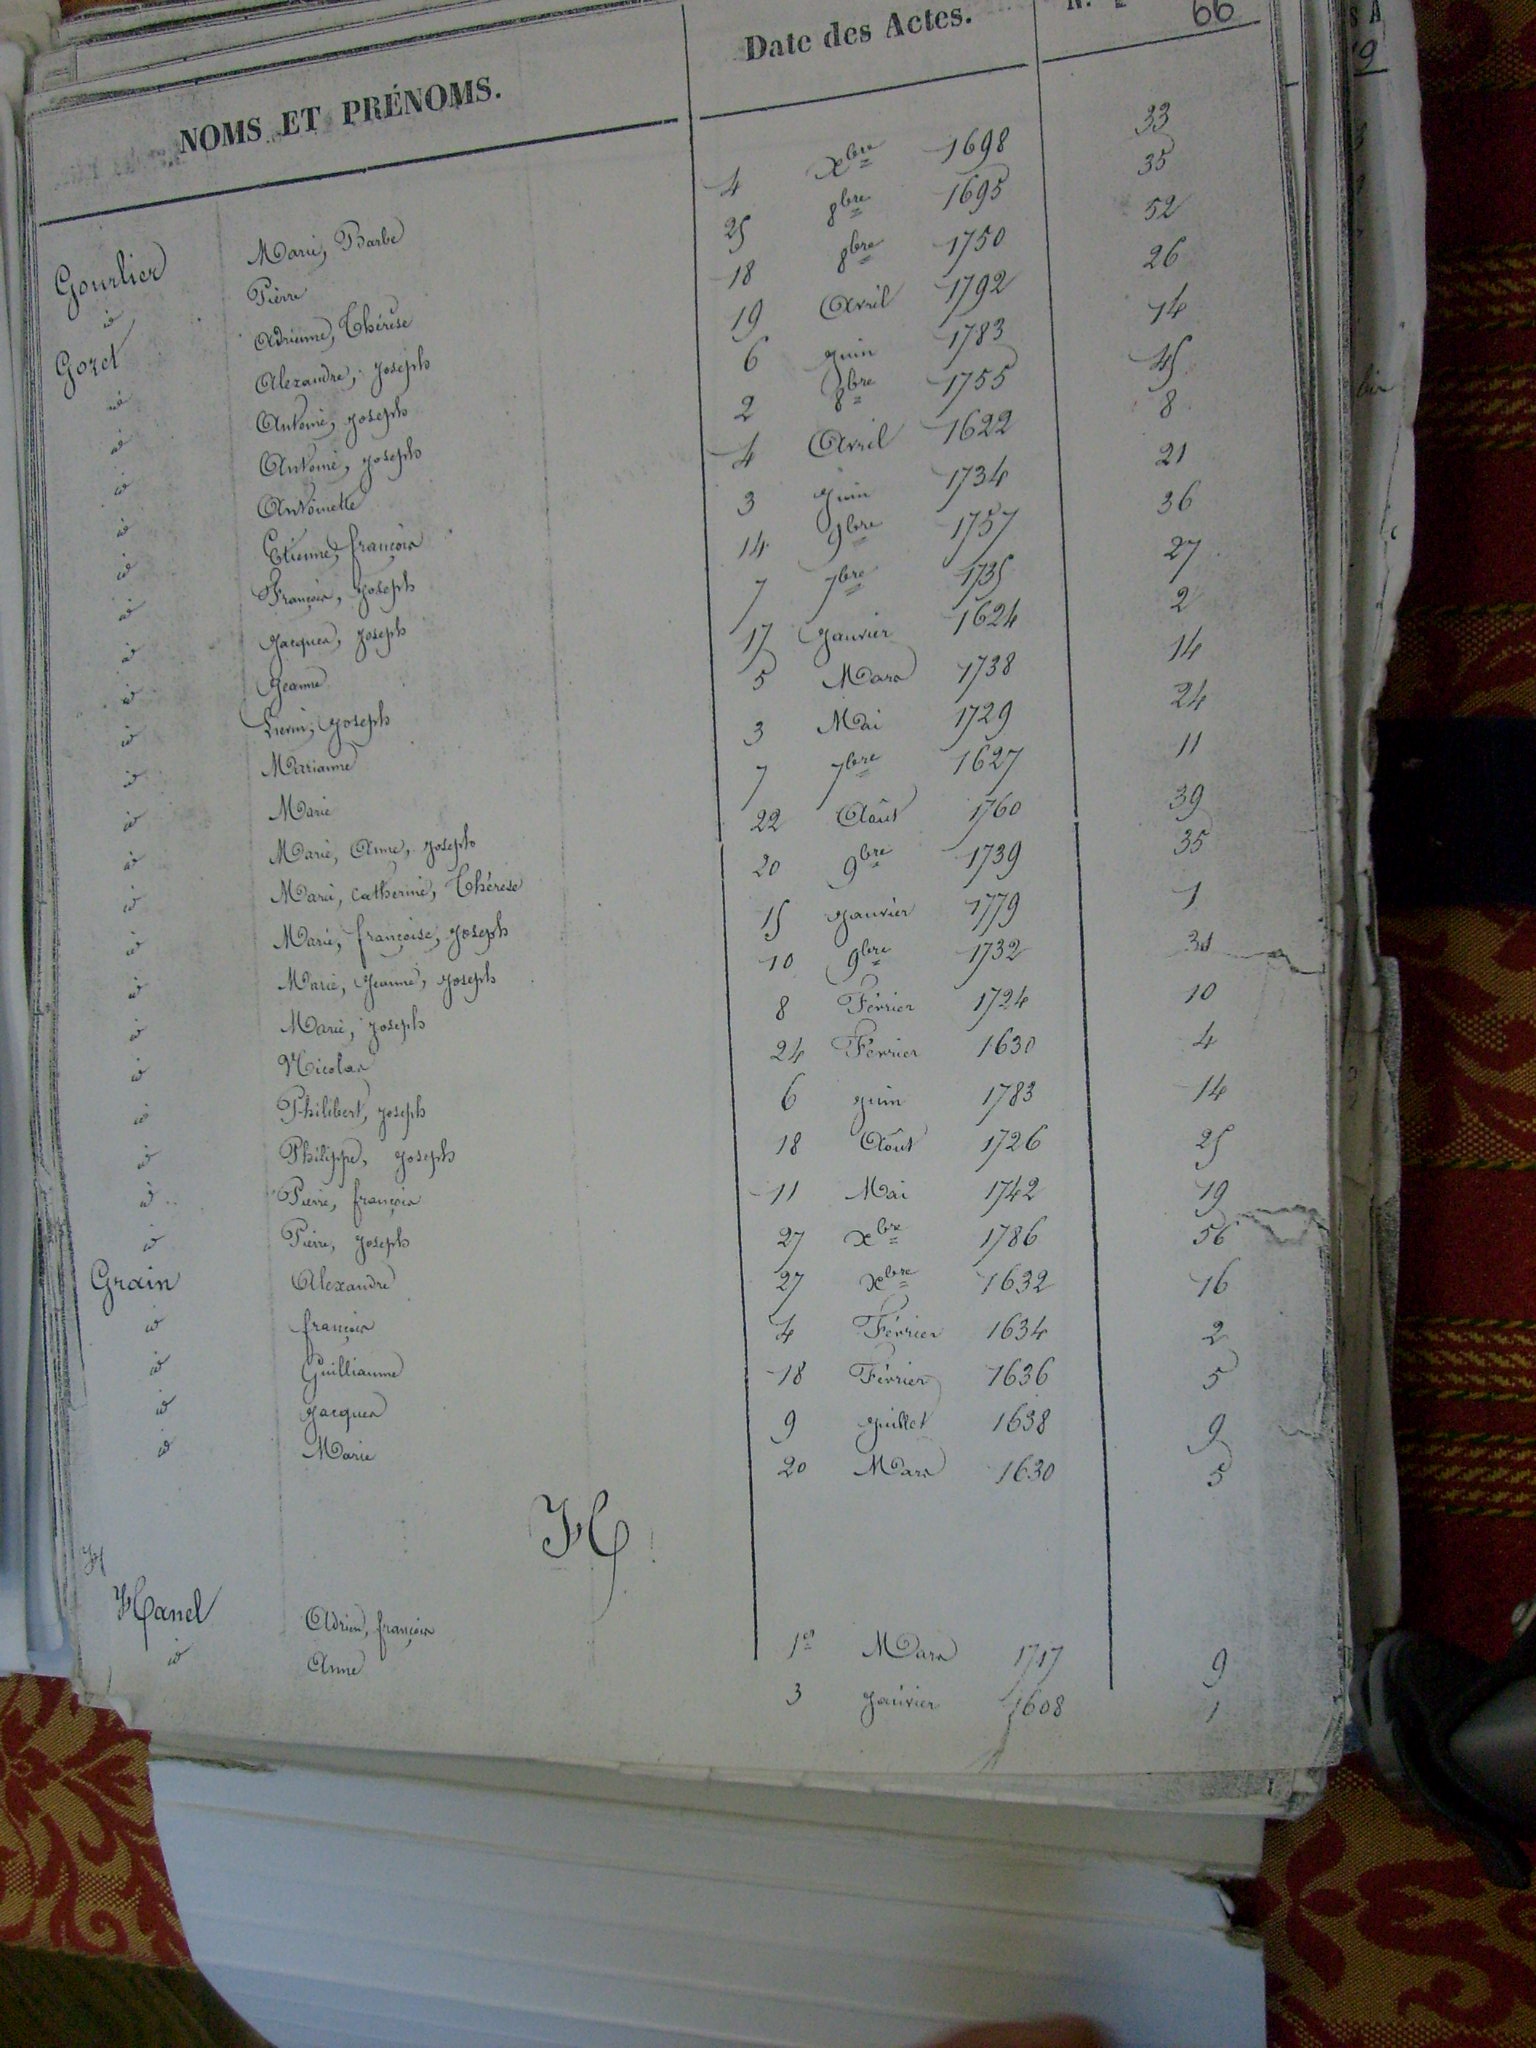 NOMS ET PRÉNOMS. Date des Actes. 66
Gourlier Marie, Barbe 4 Xbre 1698 33
id Pierre 25 8bre 1695 35
Goret Adrienne, Thérèse 18 8bre 1750 52
id Alexandre, Joseph 19 Avril 1792 26
id Antoine, Joseph 6 Juin 1783 14
id Antoine, Joseph 2 8bre 1755 45
id Antoinette 4 Avril 1622 8
id Etienne, françois 3 Juin 1734 21
id François, Joseph 14 9bre 1757 36
id Jacques, Joseph 7 7bre 1735 27
id Jeanne 17 Janvier 1624 2
id Lievin, Joseph 5 Mars 1738 14
id Marianne 3 Mai 1729 24
id Marie 7 7bre 1627 11
id Marie, Anne, Joseph 22 Août 1760 39
id Marie, Catherine, Thérèse 20 9bre 1739 35
id Marie, françoise, Joseph 15 Janvier 1779 1
id Marie, Jeanne, Joseph 10 9bre 1732 31
id Marie, Joseph 8 Février 1724 10
id Nicolas 24 Février 1630 4
id Philibert, Joseph 6 Juin 1783 14
id Philippe, Joseph 18 Août 1726 25
id Pierre, françois 11 Mai 1742 19
id Pierre, Joseph 27 Xbre 1786 56
Grain Alexandre 27 Xbre 1632 16
id françois 4 Février 1634 2
id Guilliaume 18 Février 1636 5
id Jacques 9 Juillet 1638 9
id Marie 20 Mars 1630 5
H
H
Hanel Adrien, françois 1er Mars 1717 9
id Anne 3 Janvier 1608 1